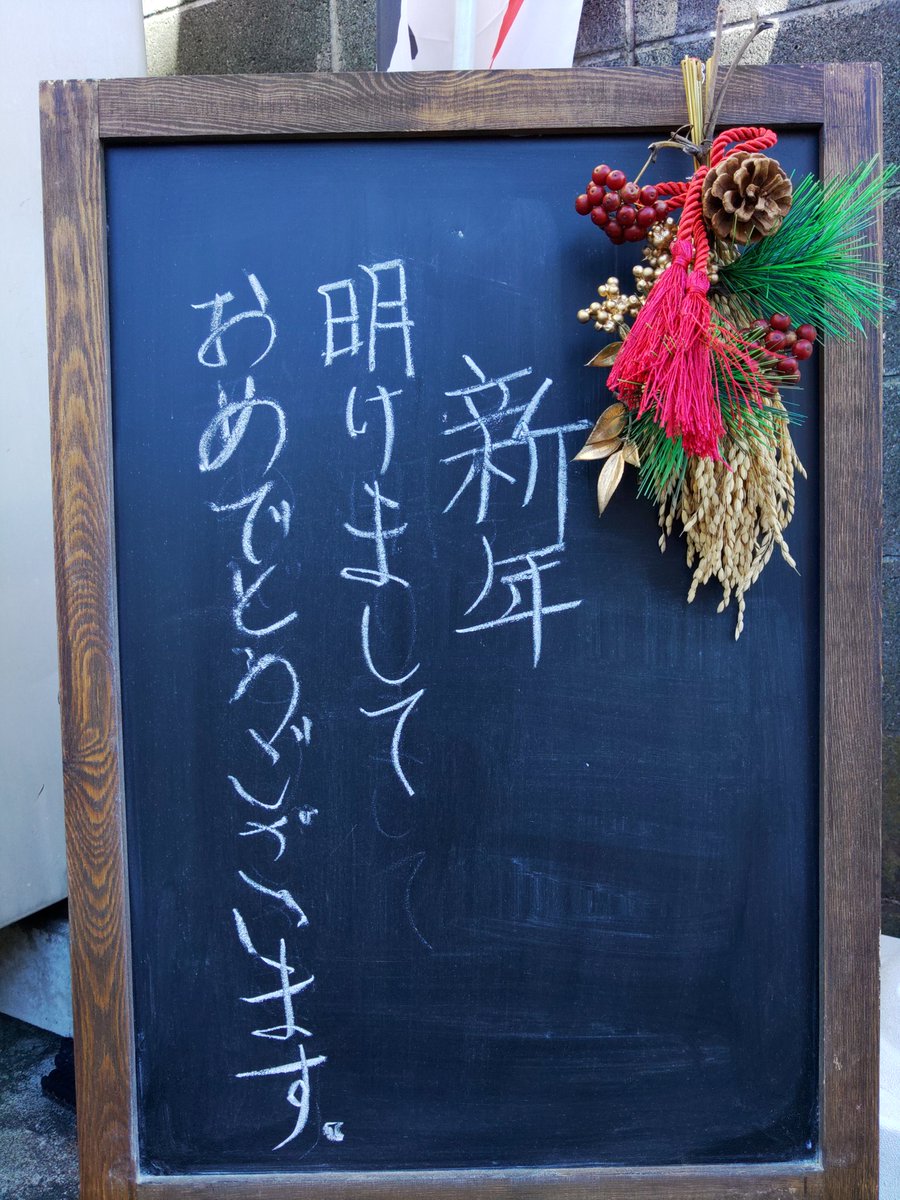 新年
明けまして
おめでとうございます。